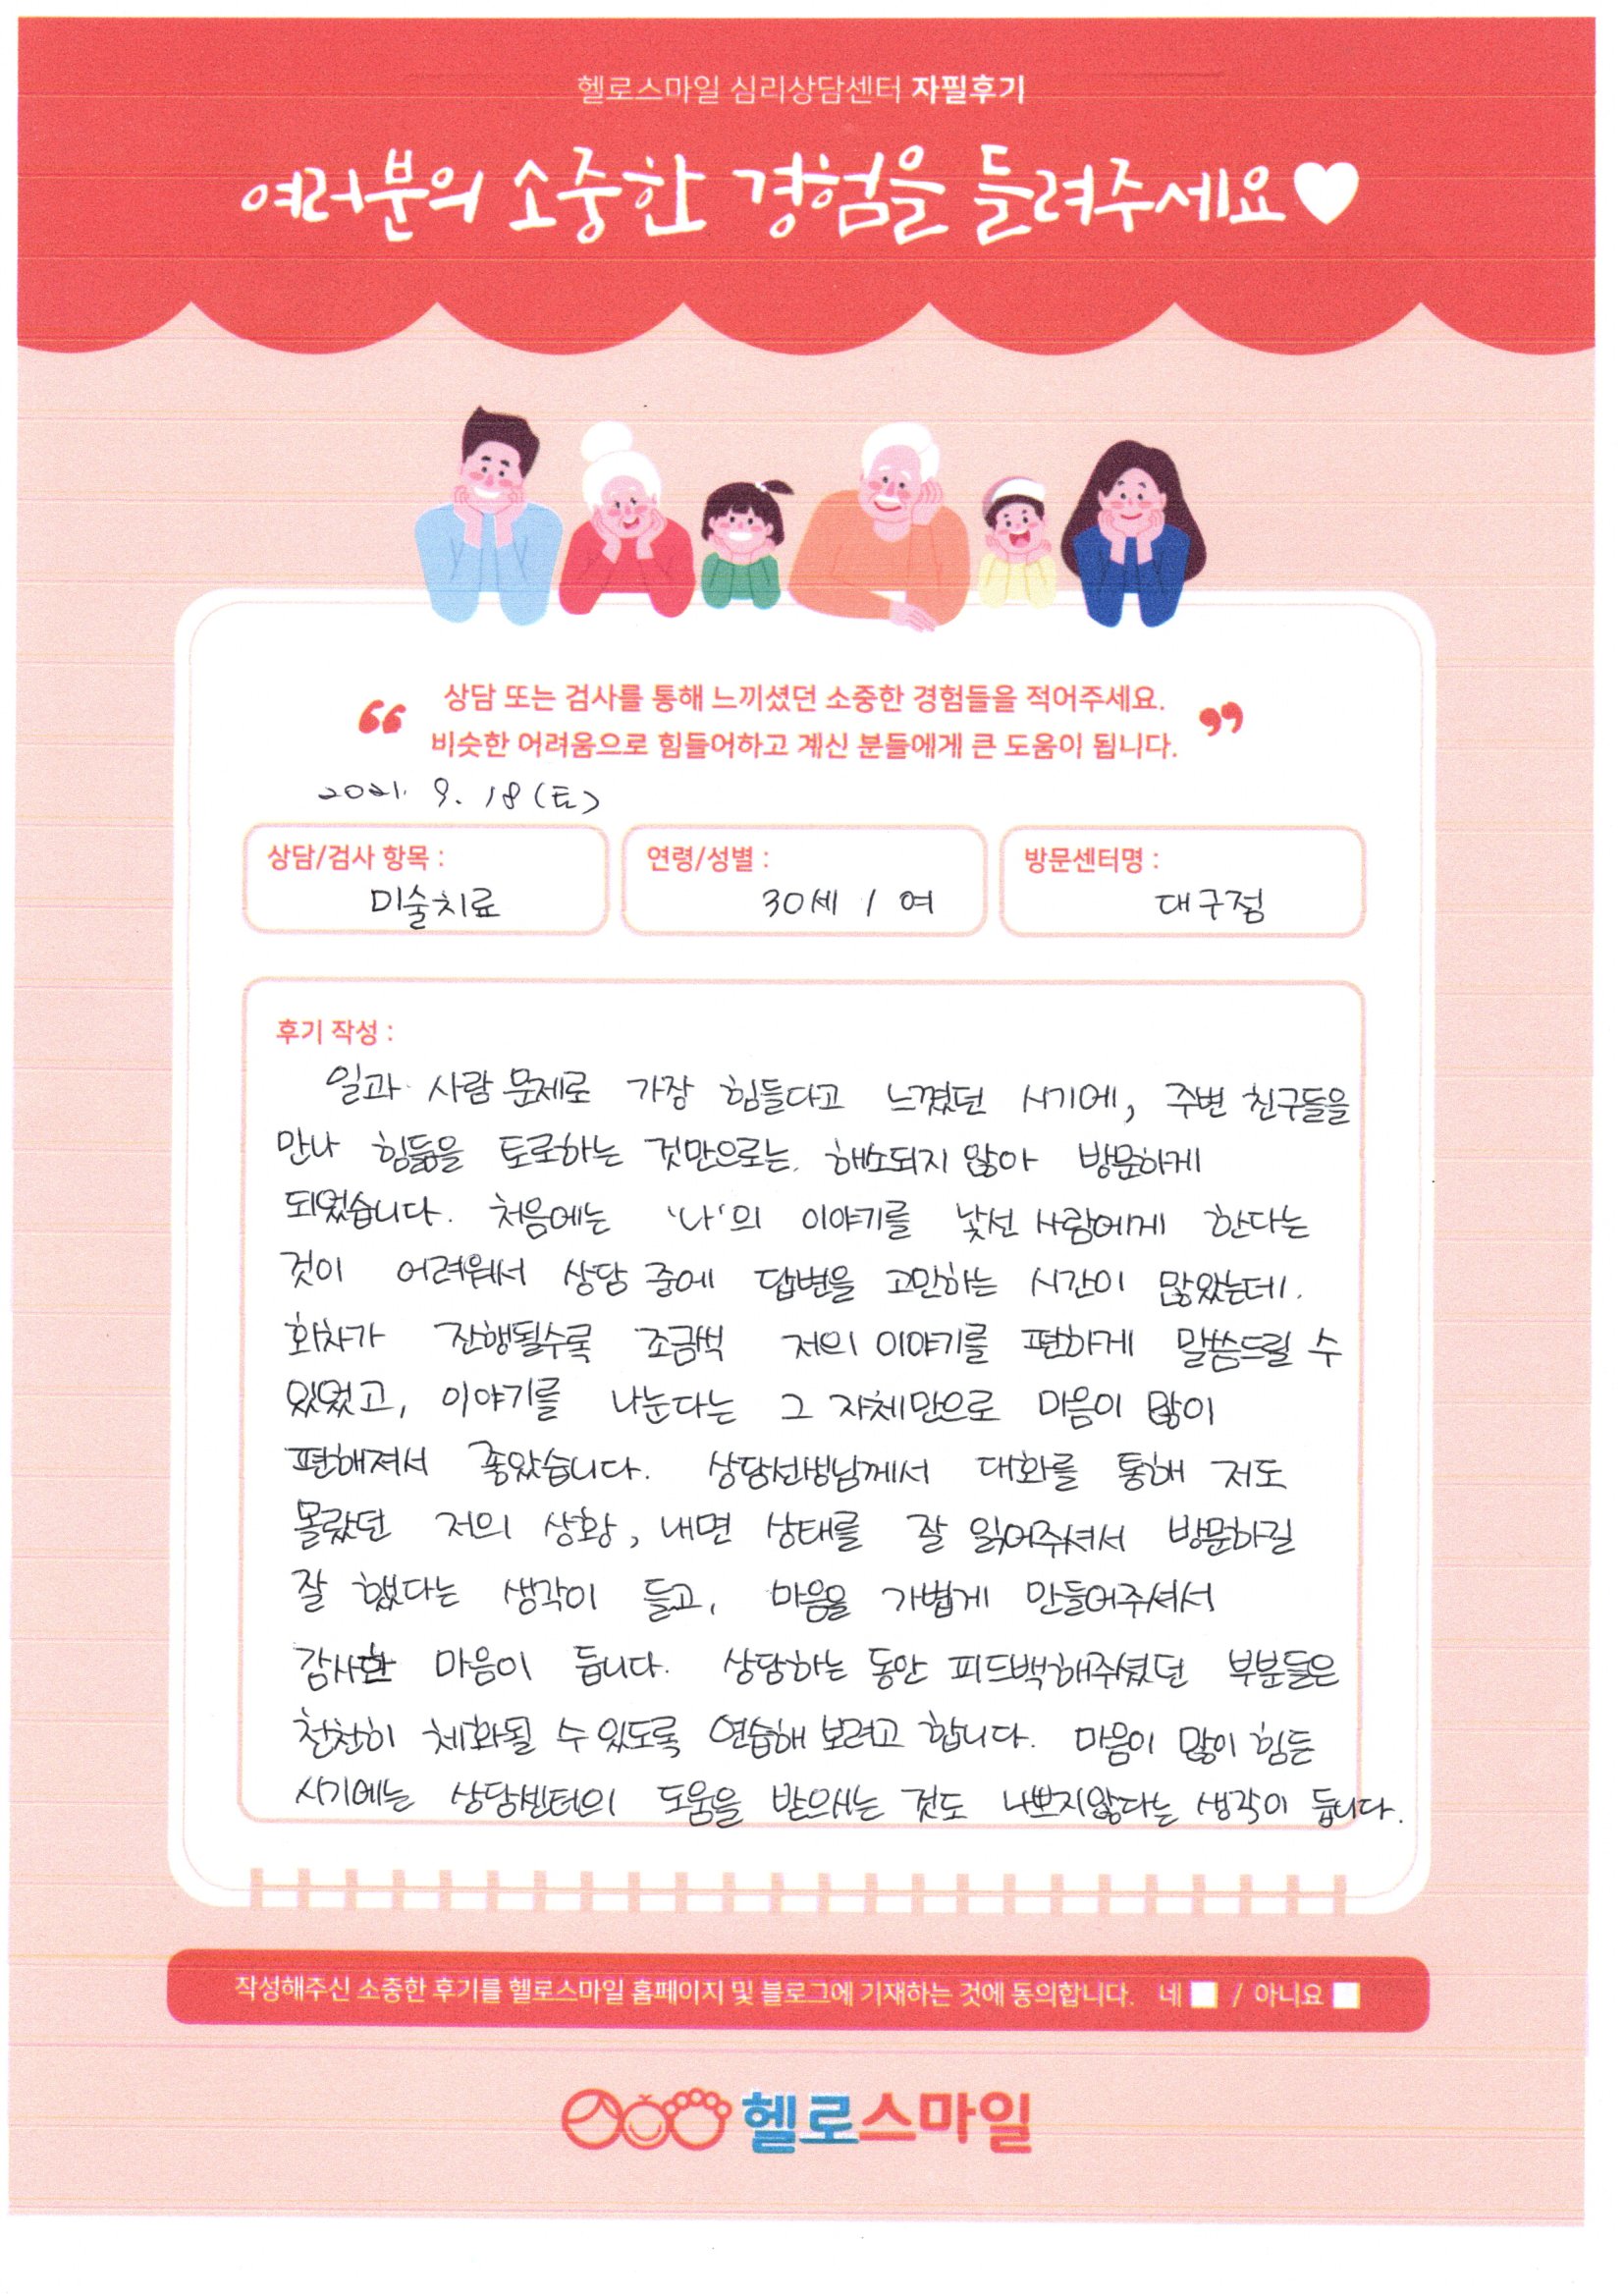 헬로스마일 심리상담센터 자필후기
여러분의 소중한 경험을 들려주세요
상담 또는 검사를 통해 느끼셨던 소중한 경험들을 적어주세요.
비슷한 어려움으로 힘들어하고 계신 분들에게 큰 도움이 됩니다.
2021. 9. 18 (토)
상담/검사 항목 : 연령/성별 : 방문센터명 :
미술치료 30세 / 여 대구점
후기 작성 :
일과 사람 문제로 가장 힘들다고 느꼈던 시기에, 주변 친구들을
만나 힘듦을 토로하는 것만으로는 해소되지 않아 방문하게
되었습니다. 처음에는 '나'의 이야기를 낯선 사람에게 한다는
것이 어려워서 상담 중에 답변을 고민하는 시간이 많았는데,
회차가 진행될수록 조금씩 저의 이야기를 편하게 말씀드릴 수
있었고, 이야기를 나눈다는 그 자체만으로 마음이 많이
편해져서 좋았습니다. 상담선생님께서 대화를 통해 저도
몰랐던 저의 상황, 내면 상태를 잘 읽어주셔서 방문하길
잘 했다는 생각이 들고, 마음을 가볍게 만들어주셔서
감사한 마음이 듭니다. 상담하는 동안 피드백해주셨던 부분들은
천천히 체화될 수 있도록 연습해 보려고 합니다. 마음이 많이 힘든
시기에는 상담센터의 도움을 받으시는 것도 나쁘지않다는 생각이 듭니다.
작성해주신 소중한 후기를 헬로스마일 홈페이지 및 블로그에 기재하는 것에 동의합니다. 네 / 아니요
헬로스마일